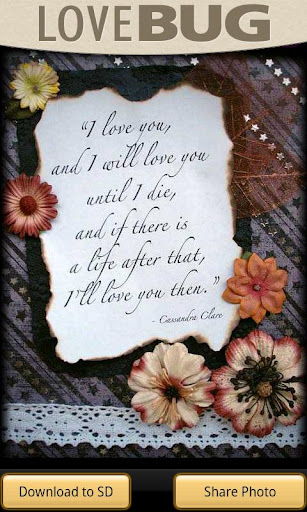 LOVEBUG
“I love you,
and I will love you
until I die,
and if there is
a life after that,
I'll love you then.”
- Cassandra Clare
Download to SD
Share Photo